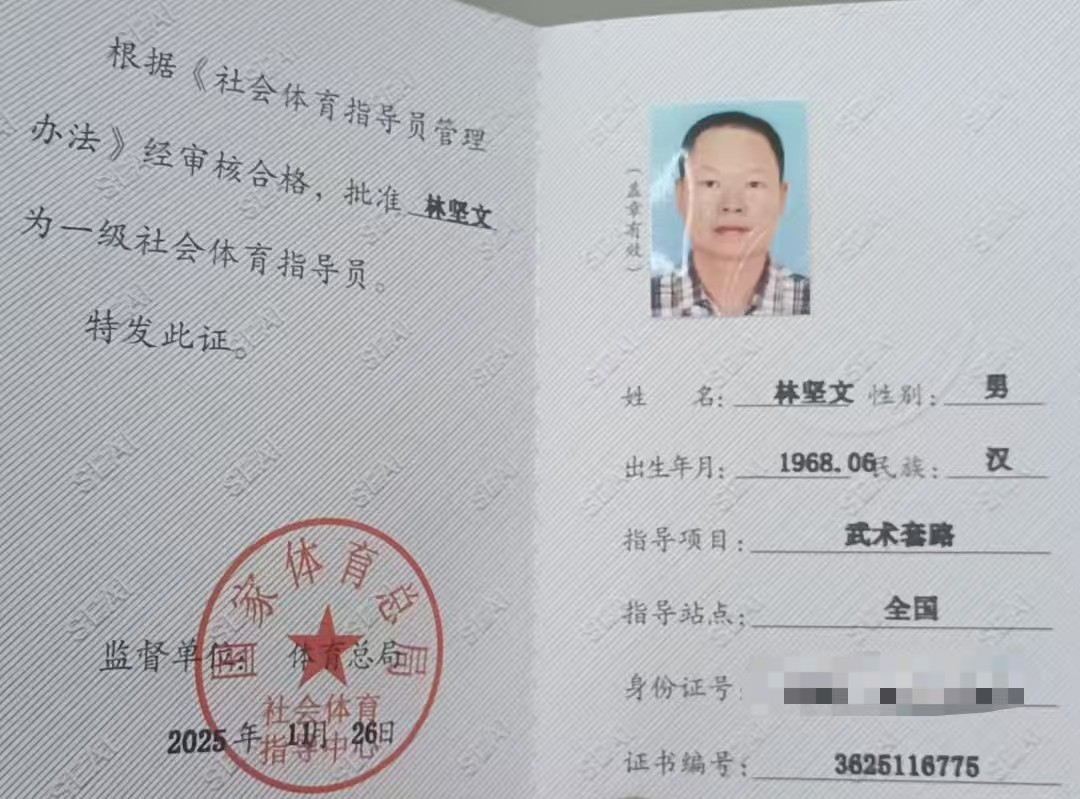 根据《社会体育指导员管理
办法》经审核合格，批准 林坚文
为一级社会体育指导员。
特发此证。
监督单位：体育总局
2025 年 11月 26日
国家体育总局
社会体育
指导中心
（盖章有效）
姓 名：林坚文 性别：男
出生年月：1968.06 民族：汉
指导项目：武术套路
指导站点：全国
身份证号：
证书编号：3625116775
SEAI